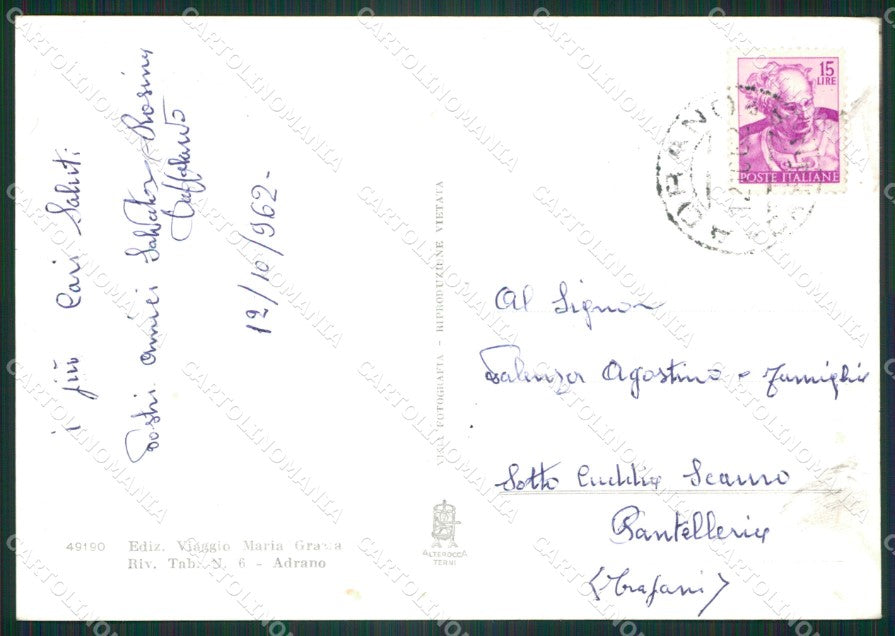 i più Cari Saluti
Vostri amici Salvatore Rosina
12/10/1962-
VERA FOTOGRAFIA - RIPRODUZIONE VIETATA
49190 Ediz. Viaggio Maria Grazia
Riv. Tab. N. 6 - Adrano
ALTEROCCA
TERNI
15
LIRE
POSTE ITALIANE
ADRANO
Al Signor
Agostino e Famiglia
Sotto Cuddia Scauro
Pantelleria
(Trapani)
CARTOLINOMANIA